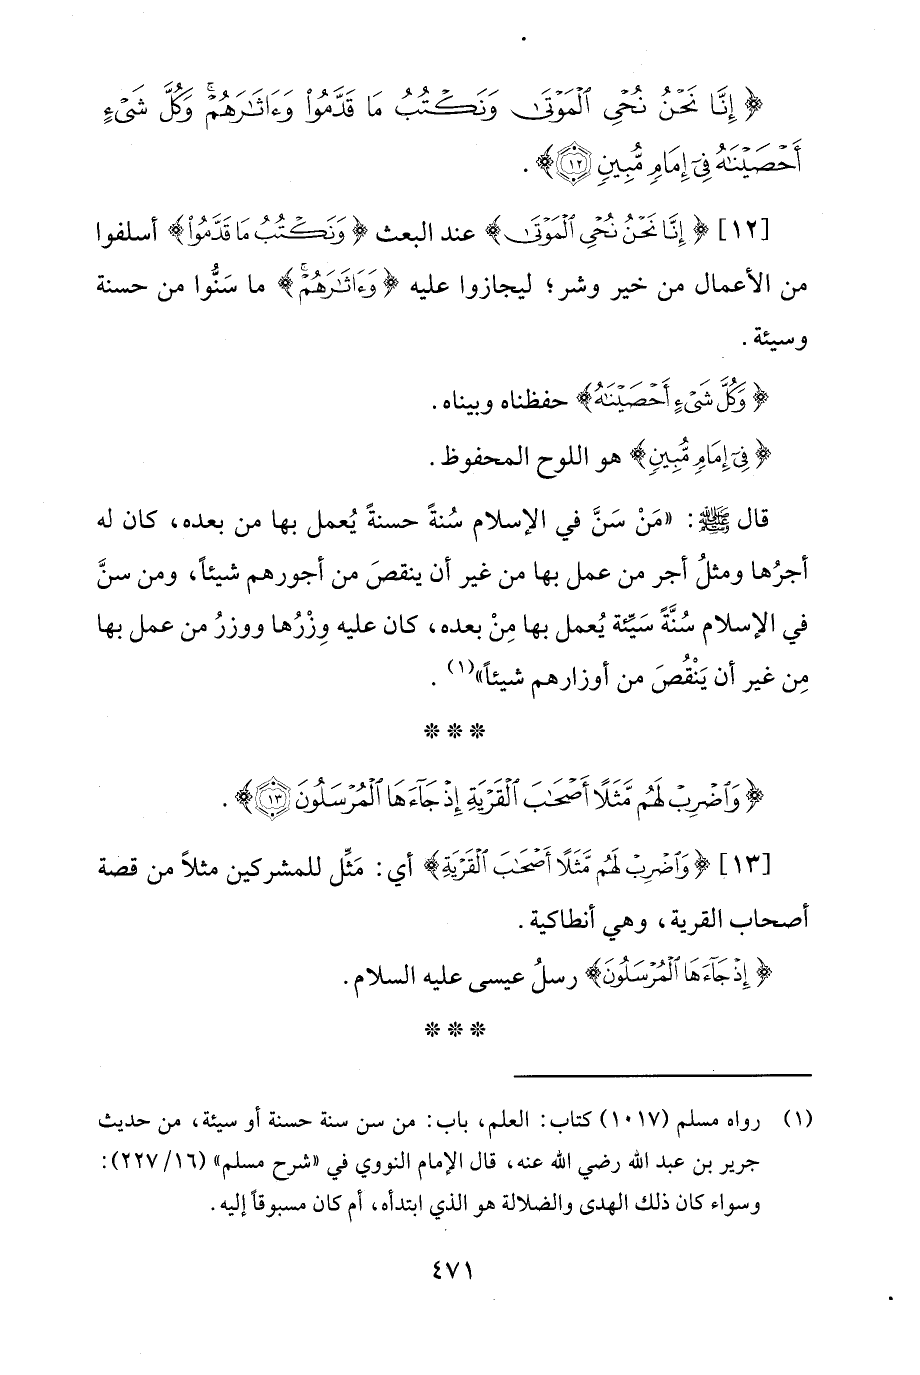 ﴿ إِنَّا نَحْنُ نُحْيِ الْمَوْتَىٰ وَنَكْتُبُ مَا قَدَّمُوا وَءَاثَارَهُمْ ۚ وَكُلَّ شَيْءٍ
أَحْصَيْنَاهُ فِي إِمَامٍ مُّبِينٍ ١٢ ﴾ .
[١٢] ﴿ إِنَّا نَحْنُ نُحْيِ الْمَوْتَىٰ ﴾ عند البعث ﴿ وَنَكْتُبُ مَا قَدَّمُوا ﴾ أسلفوا
من الأعمال من خير وشر؛ ليجازوا عليه ﴿ وَءَاثَارَهُمْ ۚ ﴾ ما سَنُّوا من حسنة
وسيئة .
﴿ وَكُلَّ شَيْءٍ أَحْصَيْنَاهُ ﴾ حفظناه وبيناه .
﴿ فِي إِمَامٍ مُّبِينٍ ﴾ هو اللوح المحفوظ .
قال ﷺ : «مَنْ سَنَّ في الإسلام سُنةً حسنةً يُعمل بها من بعده، كان له
أجرُها ومثلُ أجر من عمل بها من غير أن ينقصَ من أجورهم شيئاً، ومن سنَّ
في الإسلام سُنَّةً سَيِّئة يُعمل بها مِنْ بعده، كان عليه وِزْرُها ووزرُ من عمل بها
مِن غير أن يَنْقُصَ من أوزارهم شيئاً»(١) .
* * *
﴿ وَاضْرِبْ لَهُم مَّثَلًا أَصْحَابَ الْقَرْيَةِ إِذْ جَاءَهَا الْمُرْسَلُونَ ١٣ ﴾ .
[١٣] ﴿ وَاضْرِبْ لَهُم مَّثَلًا أَصْحَابَ الْقَرْيَةِ ﴾ أي: مَثِّل للمشركين مثلاً من قصة
أصحاب القرية، وهي أنطاكية .
﴿ إِذْ جَاءَهَا الْمُرْسَلُونَ ﴾ رسلُ عيسى عليه السلام .
* * *
(١) رواه مسلم (١٠١٧) كتاب: العلم، باب: من سن سنة حسنة أو سيئة، من حديث
جرير بن عبد الله رضي الله عنه، قال الإمام النووي في «شرح مسلم» (١٦/ ٢٢٧):
وسواء كان ذلك الهدى والضلالة هو الذي ابتدأه، أم كان مسبوقاً إليه .
٤٧١